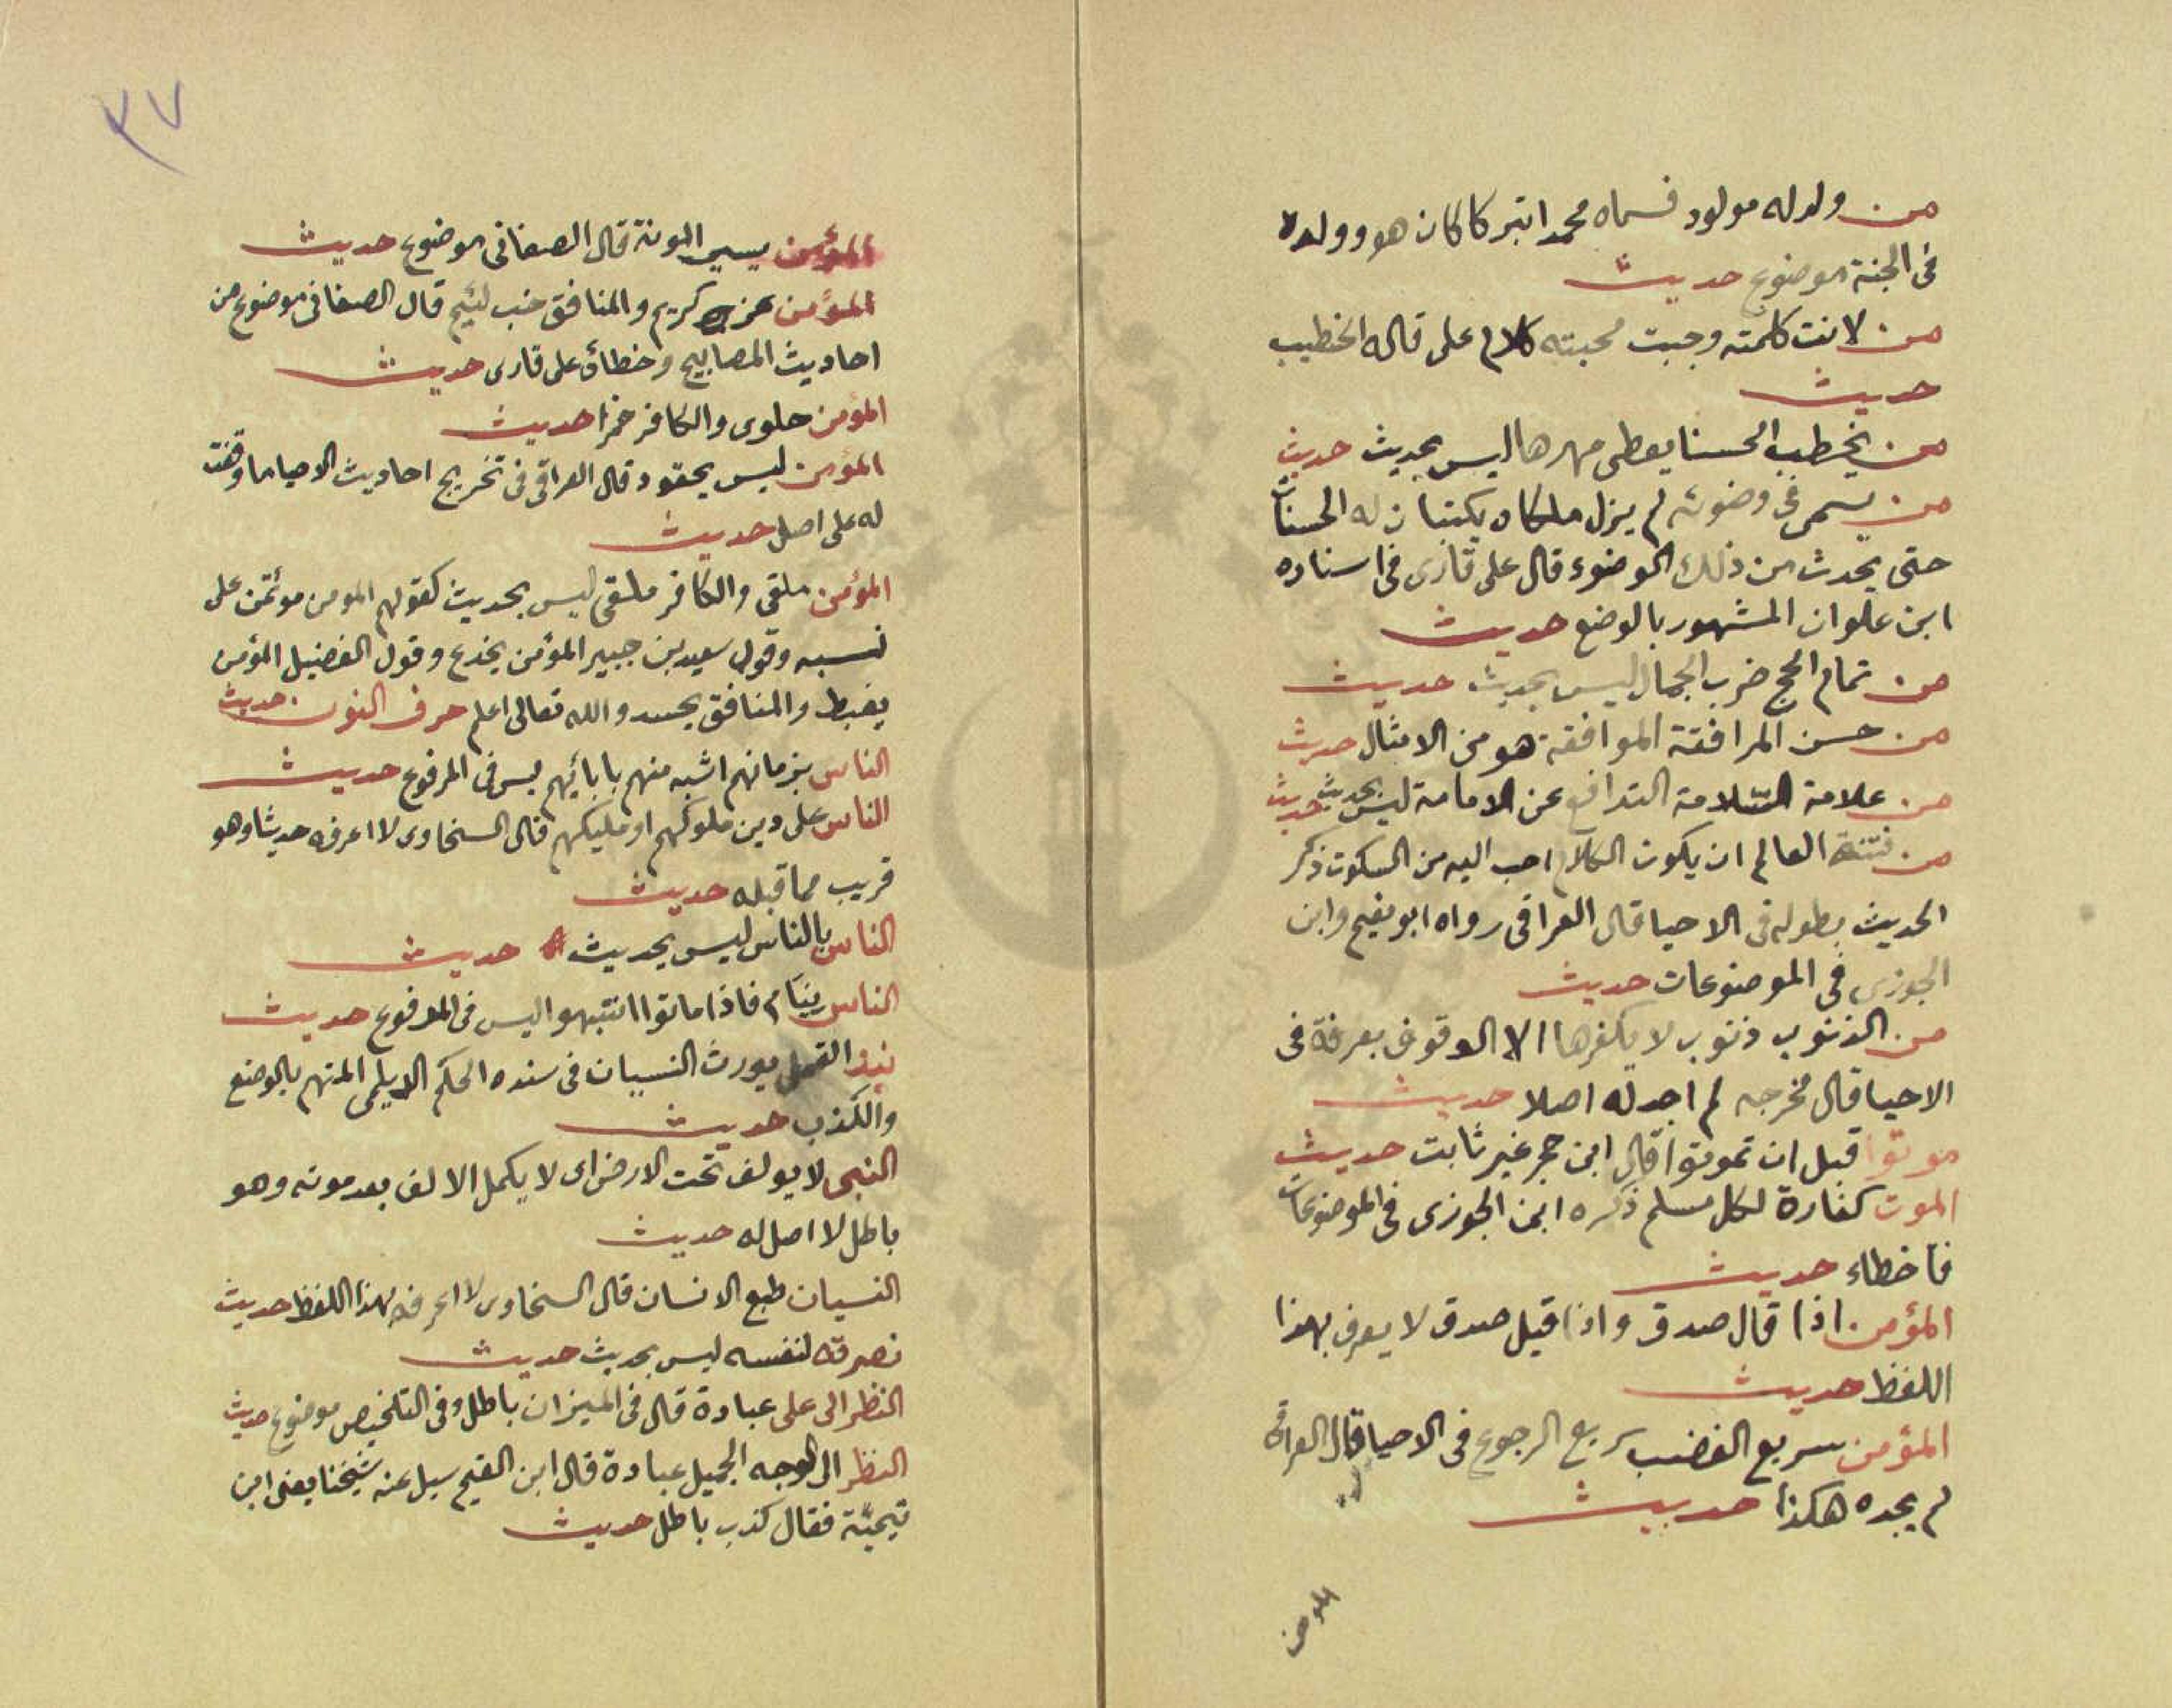 من ولد له مولود فسماه محمدا تبركا كان هو وولده
فى الجنة موضوع حديث
من لانت كلمته وجبت محبته كلام على قاله الخطيب
حديث
من يخطب الحسنا يعطى مهرها ليس بحديث حديث
من يسمى فى وضوئه لم يزل ملكاه يكتبان له الحسنات
حتى يحدث من ذلك الوضوء قال على قارى فى اسناده
ابن علوان المشهور بالوضع حديث
من تمام الحج ضرب الجمال ليس بحديث حديث
من حسن المرافقة الموافقة هو من الامثال حديث
من علامة السّلامة التدافع عن الامامة ليس بحديث حديث
من فتنة العالم ان يكون الكلام احب اليه من السكوت ذكر
الحديث بطوله فى الاحيا قال العراقى رواه ابو نعيم وابن
الجوزى فى الموضوعات حديث
من الذنوب ذنوب لا يكفرها الا الوقوف بعرفة فى
الاحيا قال مخرجه لم اجد له اصلا حديث
موتوا قبل ان تموتوا قال ابن حجر غير ثابت حديث
الموت كفارة لكل مسلم ذكره ابن الجوزى فى الموضوعات
فأخطاء حديث
المؤمن اذا قال صدق واذا قيل صدق لا يعرف بهذا
اللفظ حديث
المؤمن سريع الغضب سريع الرجوع فى الاحيا قال العراقى
لم يجده هكذا حديث
٣٧
المؤمن يسير المونة قال الصغانى موضوع حديث
المؤمن عز كريم والمنافق خب لئيم قال الصغانى موضوع من
احاديث المصابيح وخطأه على قارى حديث
المؤمن حلوى والكافر خمرا حديث
المؤمن ليس بحقود قال العراقى فى تخريج احاديث الاحيا ما وقفت
له على اصل حديث
المؤمن ملقى والكافر ملقى ليس بحديث كقولهم المومن موتمن على
نسبه وقول سعيد بن جبير المؤمن يخدع وقول الفضيل المؤمن
يغبط والمنافق يحسد والله تعالى اعلم حرف النون حديث
الناس بزمانهم اشبه منهم بابائهم ليس فى المرفوع حديث
الناس على دين ملوكهم او مليكهم قال السخاوى لا اعرفه حديثا وهو
قريب مما قبله حديث
الناس بالناس ليس بحديث حديث
الناس نيام فاذا ماتوا انتبهوا ليس فى المرفوع حديث
نبذ القمل يورث النسيان فى سنده الحكم الايلى المتهم بالوضع
والكذب حديث
النبى لا يولف تحت الارض اى لا يكمل الالف بعد موته وهو
باطل لا اصل له حديث
النسيان طبع الانسان قال السخاوى لا اعرفه بهذا اللفظ حديث
نصرته لنفسه ليس بحديث حديث
النظر الى على عبادة قال فى الميزان باطل وفى التلخيص موضوع حديث
النظر الى الوجه الجميل عبادة قال ابن القيم سيل عنه شيخنا يعنى ابن
تيميّة فقال كذب باطل حديث